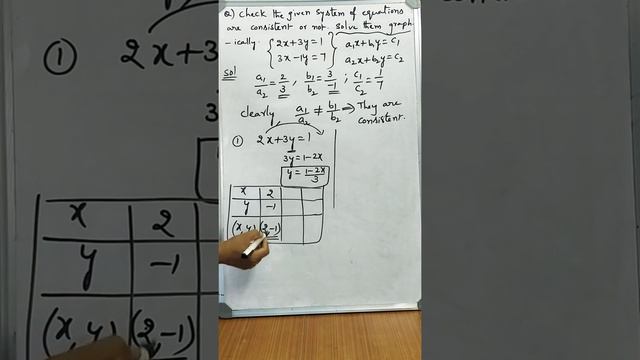 Q) Check the given system of equations
are consistent or not. Solve them graph
-ically. { 2x+3y=1 } a₁x+b₁y=c₁
{ 3x-1y=7 } a₂x+b₂y=c₂
Sol a₁/a₂ = 2/3 , b₁/b₂ = 3/-1 ; c₁/c₂ = 1/7
clearly a₁/a₂ ≠ b₁/b₂ ⇒ They are
consistent.
① 2x+3y=1
3y=1-2x
y = 1-2x/3
x 2
y -1
(x,y) (2,-1)